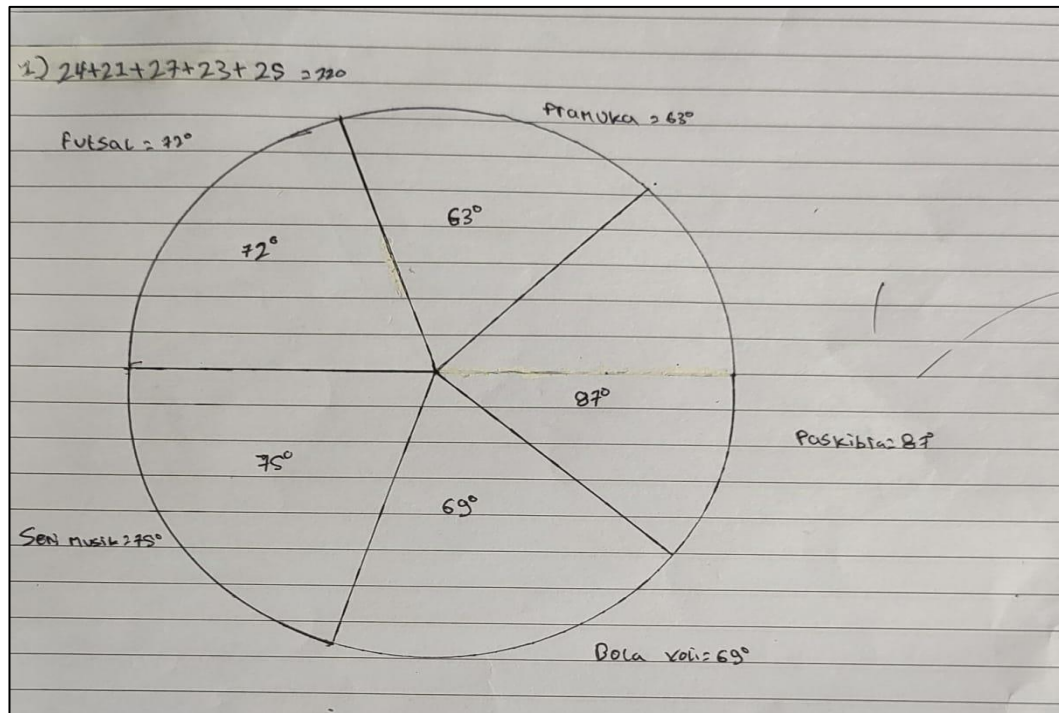 1) 24+21+27+23+25 = 120
Pramuka = 63°
Futsal = 72°
63°
72°
87°
Paskibra = 87°
75°
69°
Seni musik = 75°
Bola voli = 69°